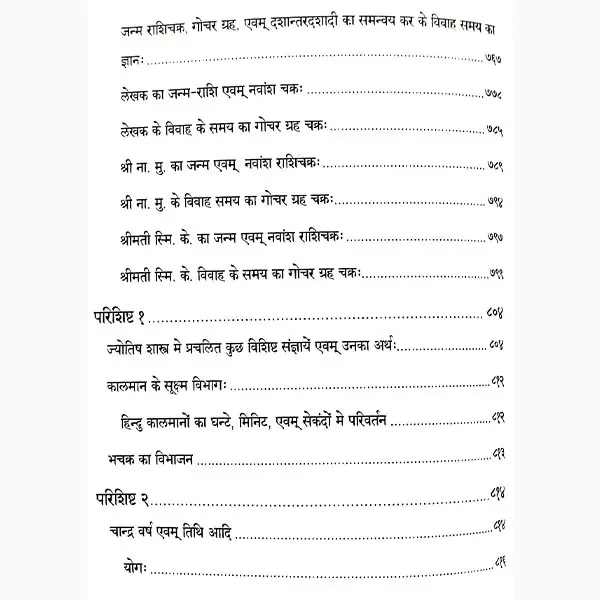 जन्म राशिचक्र, गोचर ग्रह, एवम् दशान्तरदशादी का समन्वय कर के विवाह समय का
ज्ञानः ........ ७६७
लेखक का जन्म-राशि एवम् नवांश चक्रः ........ ७७८
लेखक के विवाह के समय का गोचर ग्रह चक्रः ........ ७८५
श्री ना. मु. का जन्म एवम् नवांश राशिचक्रः ........ ७८९
श्री ना. मु. के विवाह समय का गोचर ग्रह चक्रः ........ ७९४
श्रीमती स्मि. के. का जन्म एवम् नवांश राशिचक्रः ........ ७९७
श्रीमती स्मि. के. विवाह के समय का गोचर ग्रह चक्रः ........ ७९९
परिशिष्ट १ ........ ८०४
ज्योतिष शास्त्र मे प्रचलित कुछ विशिष्ट संज्ञायें एवम् उनका अर्थः ........ ८०४
कालमान के सूक्ष्म विभागः ........ ८१२
हिन्दु कालमानों का घन्टे, मिनिट, एवम् सेकंदों मे परिवर्तन ........ ८१२
भचक्र का विभाजन ........ ८१३
परिशिष्ट २ ........ ८१४
चान्द्र वर्ष एवम् तिथि आदि ........ ८१४
योगः ........ ८१६